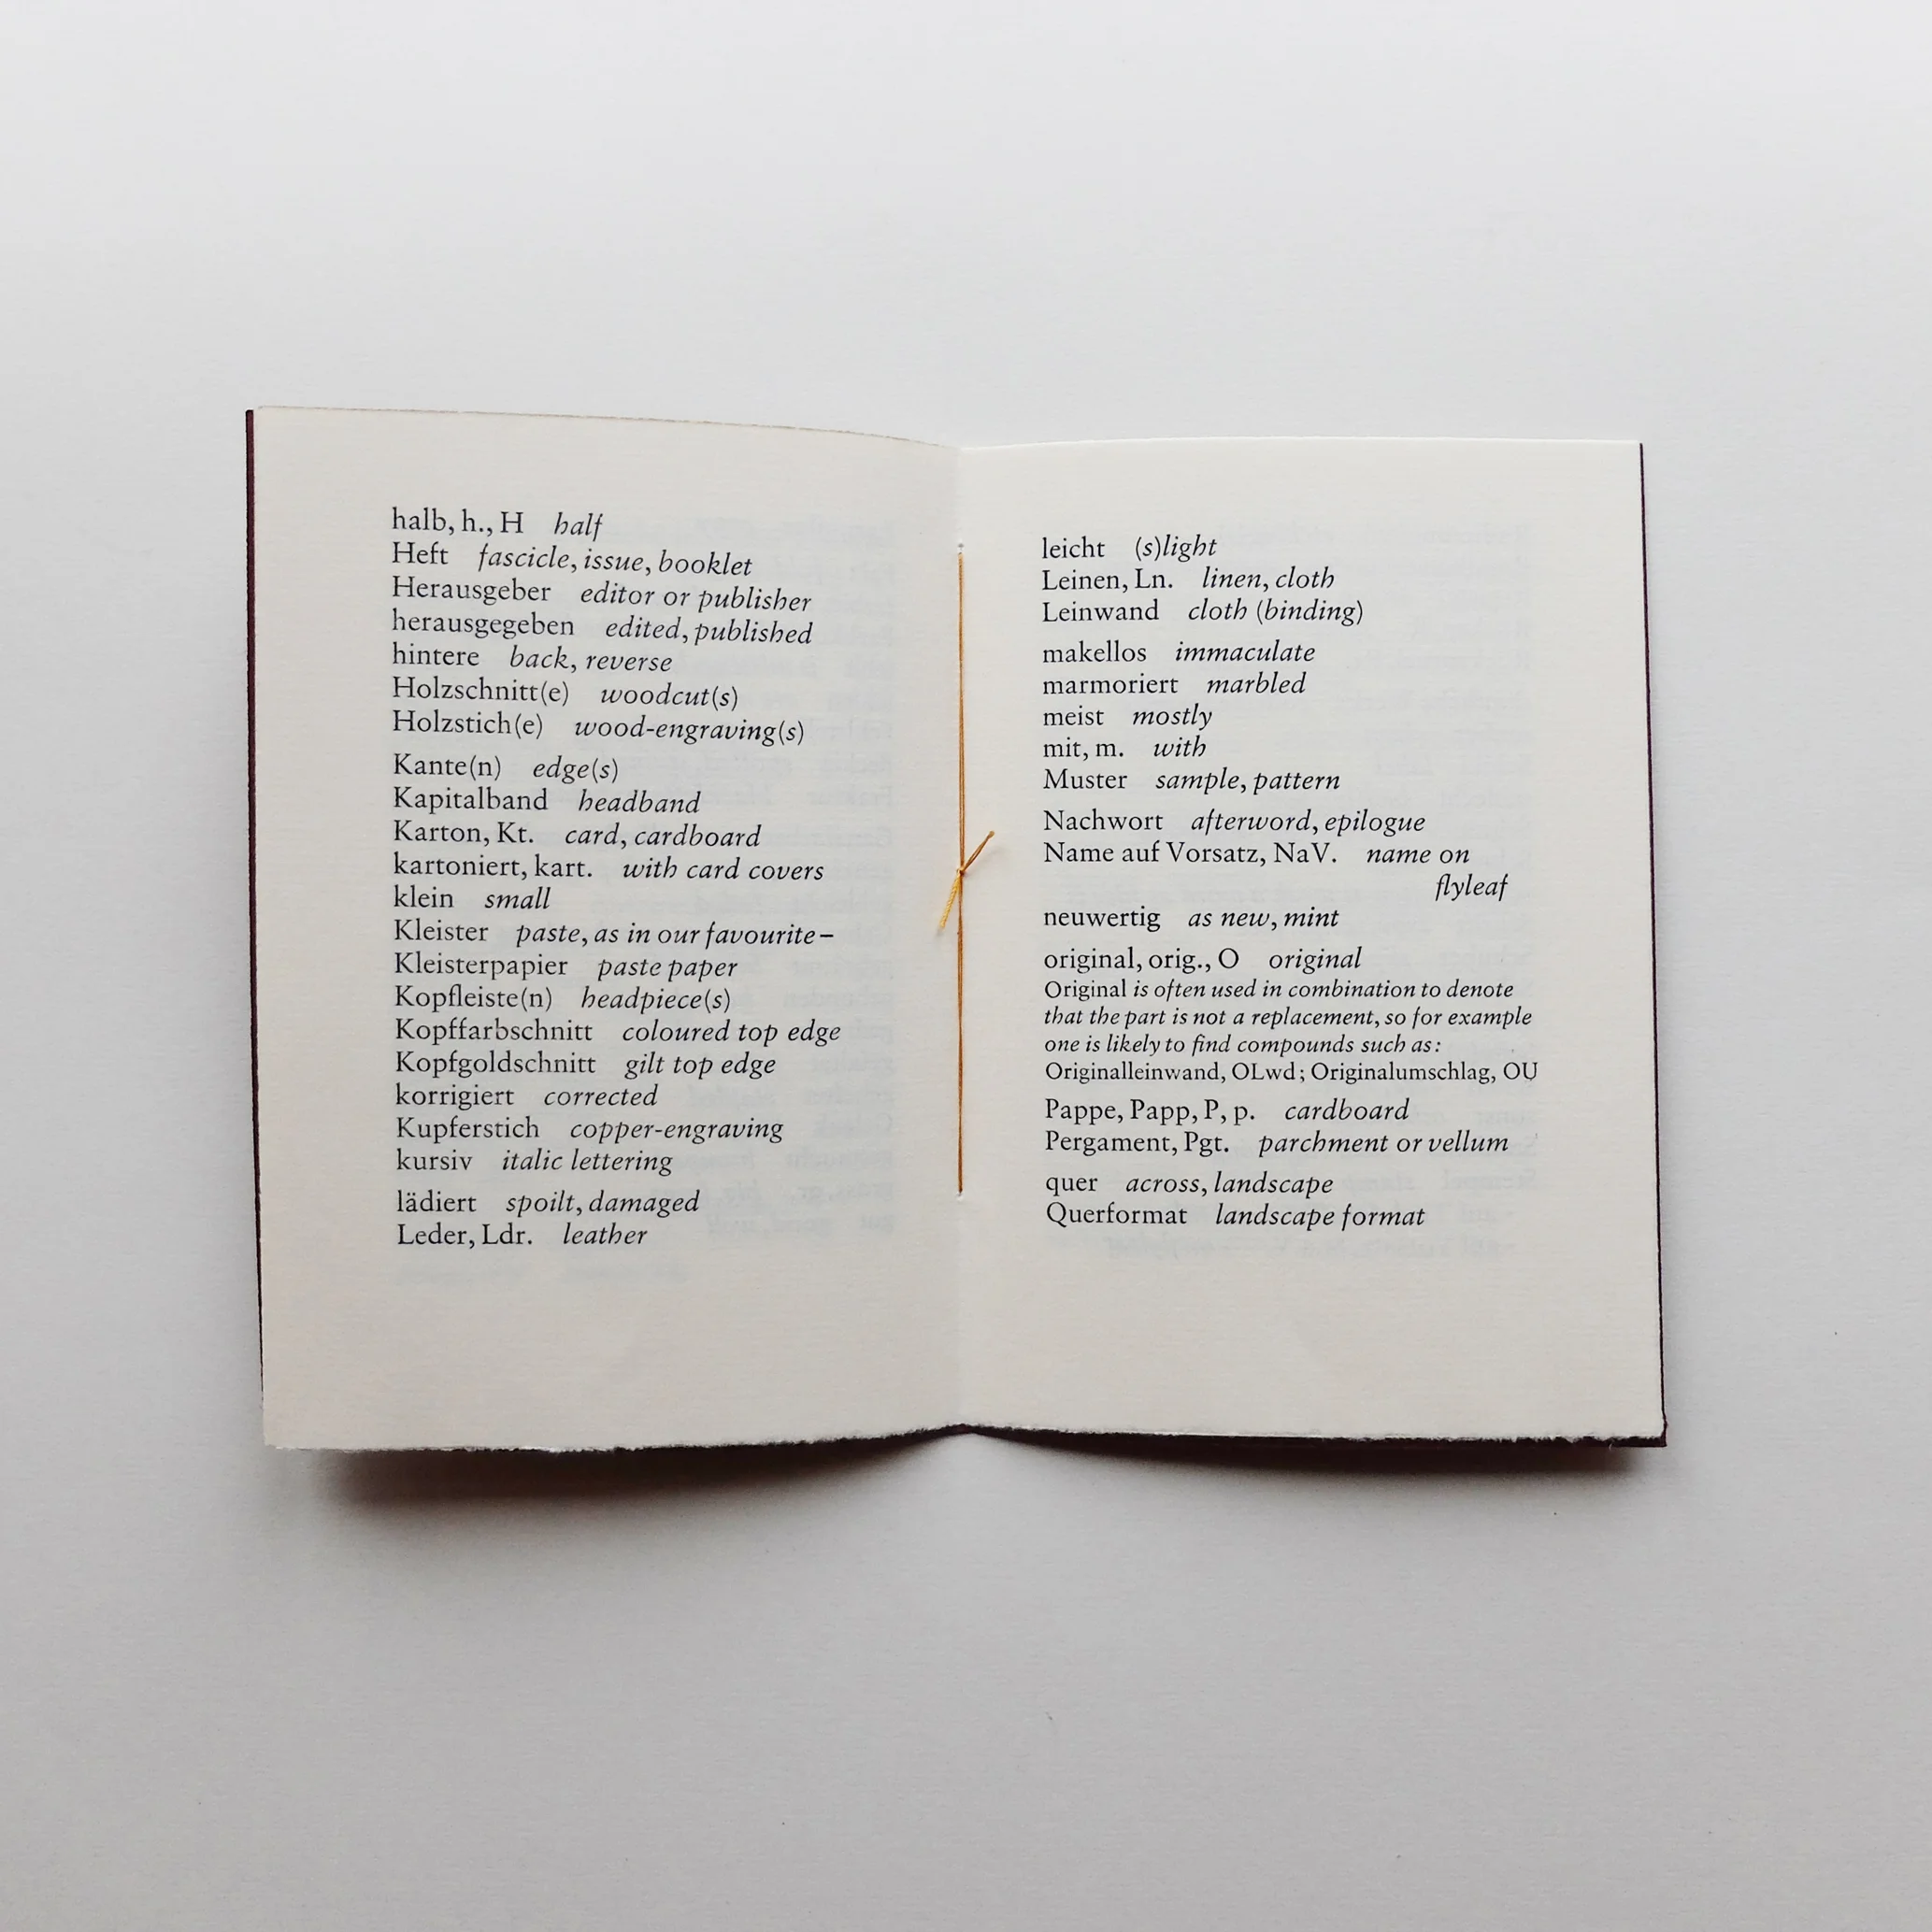 halb, h., H half
Heft fascicle, issue, booklet
Herausgeber editor or publisher
herausgegeben edited, published
hintere back, reverse
Holzschnitt(e) woodcut(s)
Holzstich(e) wood-engraving(s)
Kante(n) edge(s)
Kapitalband headband
Karton, Kt. card, cardboard
kartoniert, kart. with card covers
klein small
Kleister paste, as in our favourite –
Kleisterpapier paste paper
Kopfleiste(n) headpiece(s)
Kopffarbschnitt coloured top edge
Kopfgoldschnitt gilt top edge
korrigiert corrected
Kupferstich copper-engraving
kursiv italic lettering
lädiert spoilt, damaged
Leder, Ldr. leather
leicht (s)light
Leinen, Ln. linen, cloth
Leinwand cloth (binding)
makellos immaculate
marmoriert marbled
meist mostly
mit, m. with
Muster sample, pattern
Nachwort afterword, epilogue
Name auf Vorsatz, NaV. name on
flyleaf
neuwertig as new, mint
original, orig., O original
Original is often used in combination to denote
that the part is not a replacement, so for example
one is likely to find compounds such as:
Originalleinwand, OLwd; Originalumschlag, OU
Pappe, Papp, P, p. cardboard
Pergament, Pgt. parchment or vellum
quer across, landscape
Querformat landscape format